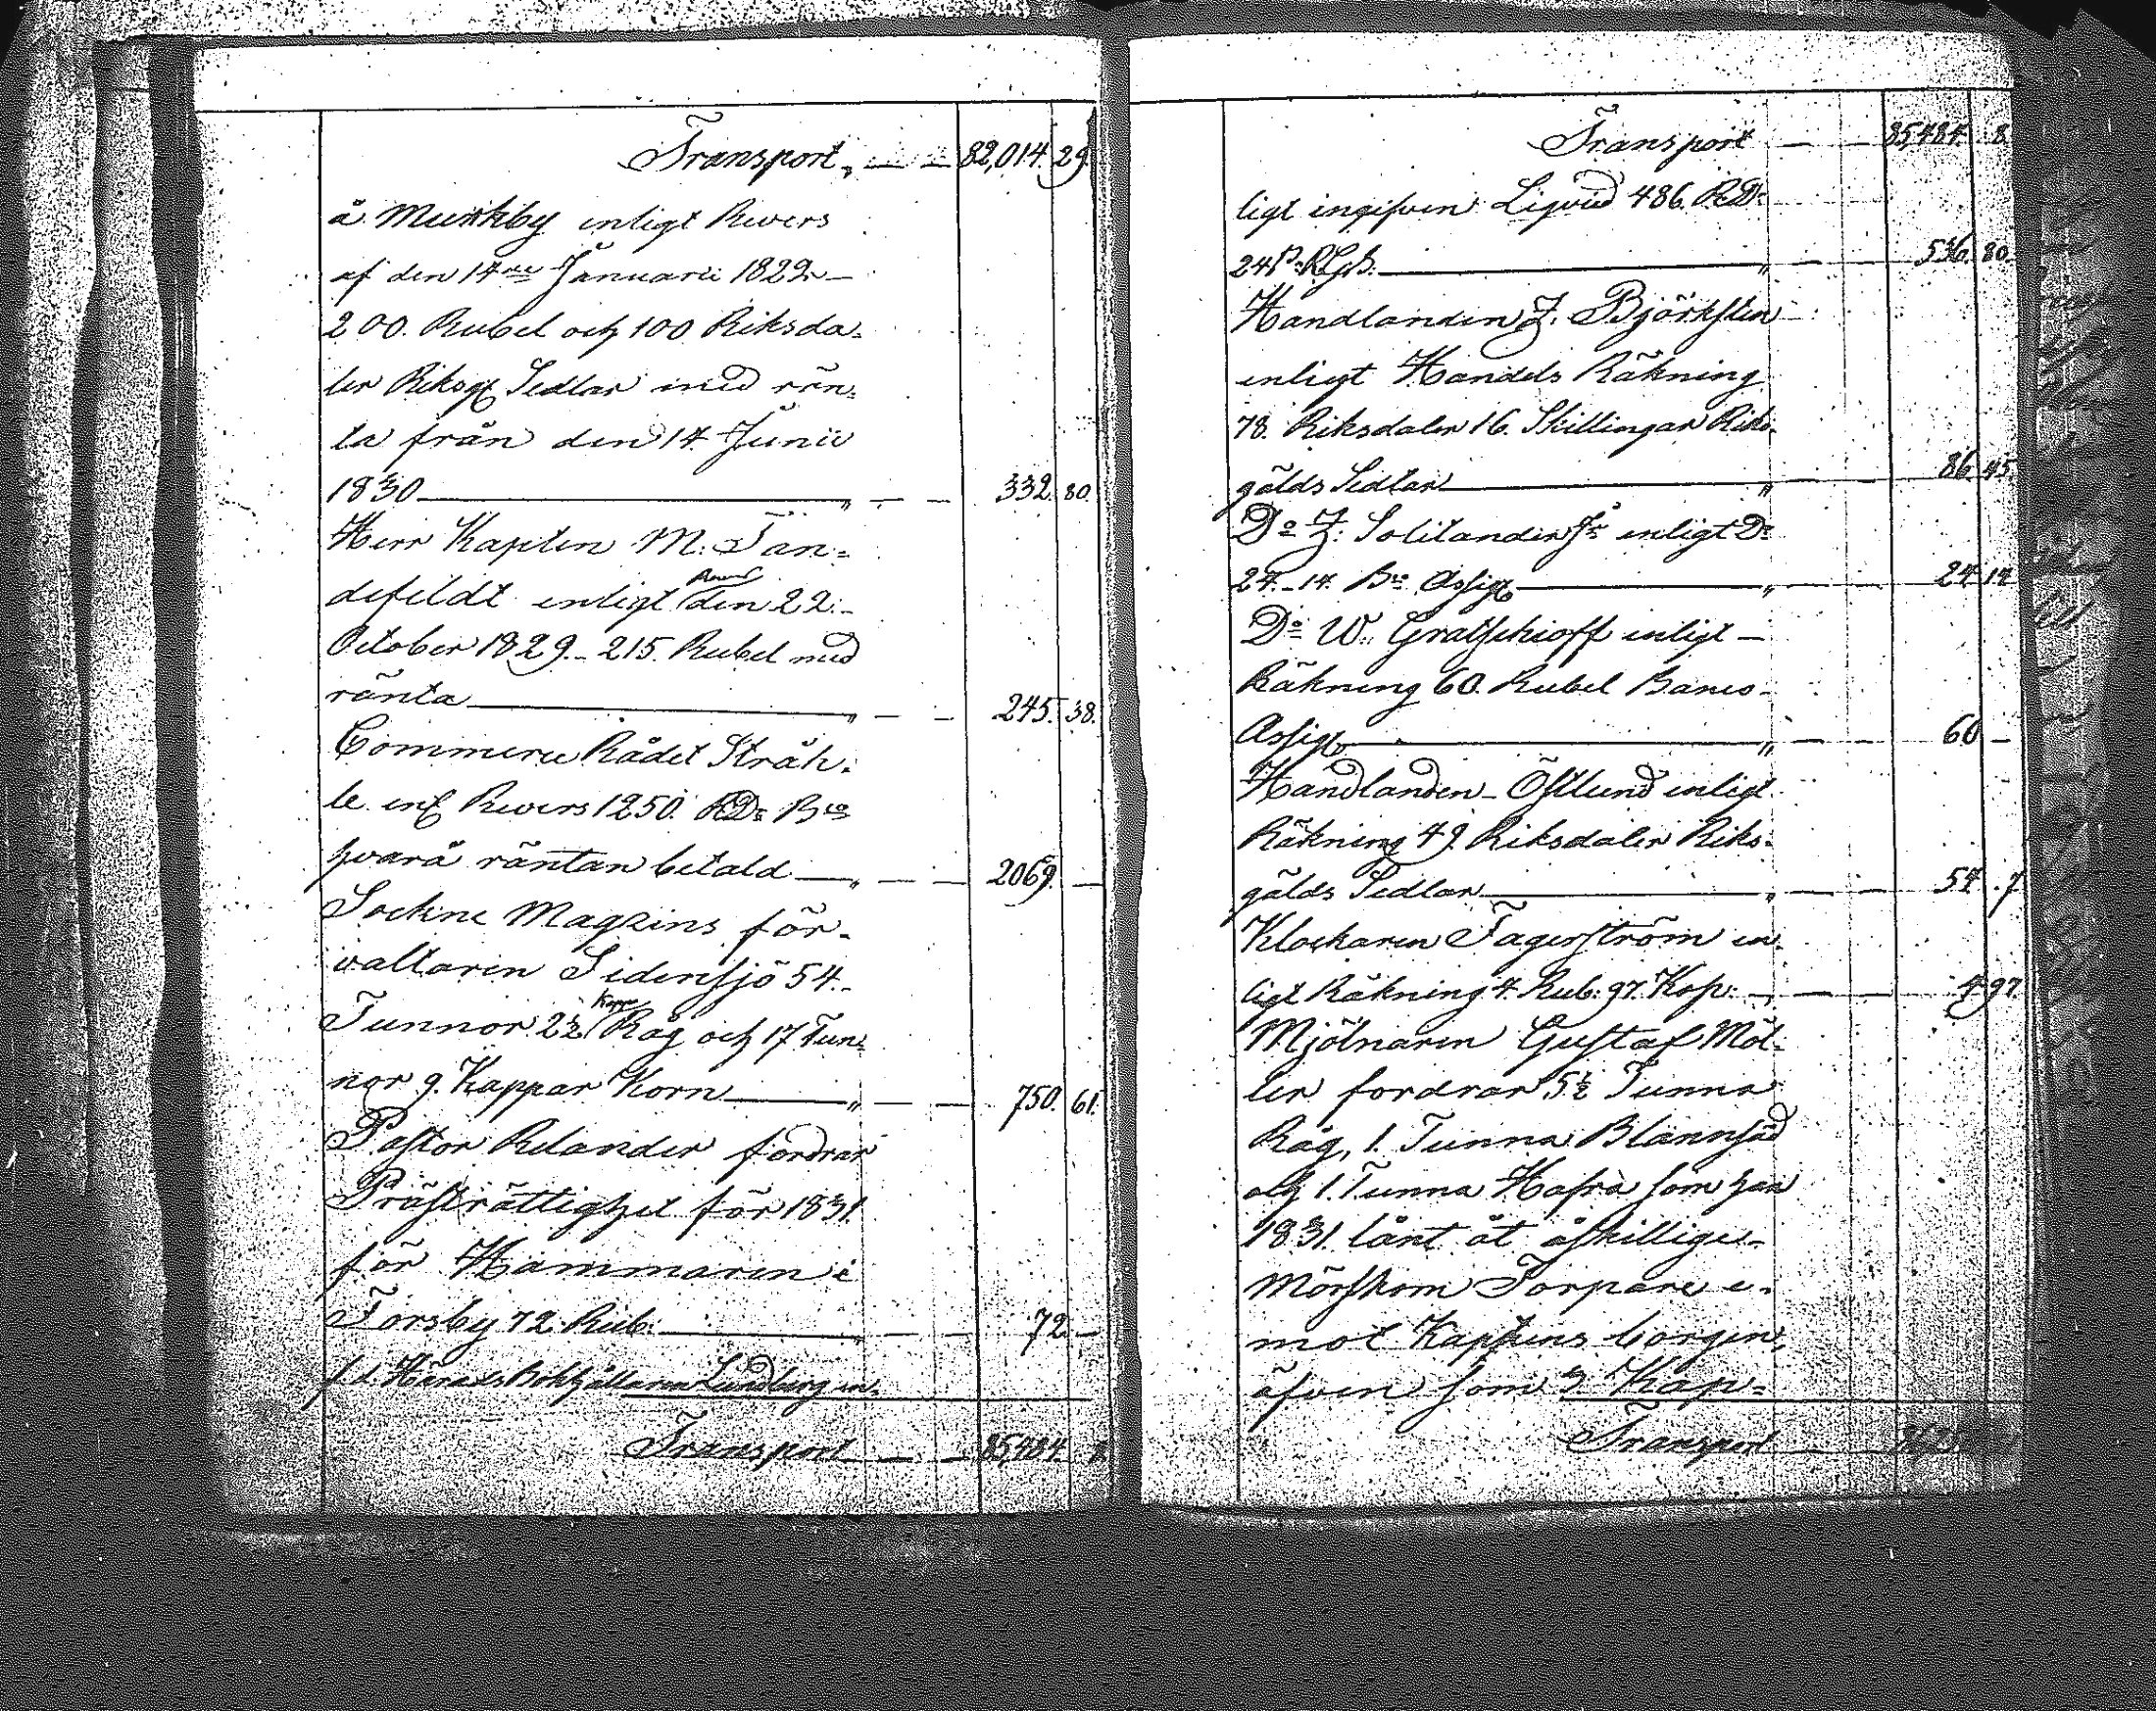 Transport „ — — 82,014. 29.
å Munkby enligt Revers
af den 14de Januarii 1829 —
200. Rubel och 100 Riksda=
ler Riksg Sedlar med rän=
ta från den 14. Junii
1830 — „ — — 332. 80.
Herr Kapten M: Tan=
defeldt enligt Revers den 22.
October 1829. – 215. Rubel med
ränta — „ — — 245. 38.
Commerce Rådet Stråh=
le enl Revers 1250. RD: Bco
hvarå räntan betald — „ — — 2069. —
Sockne Magzins för=
valtaren Sidensjö 54.
Tunnor 2½ Kappe Råg och 17 Tun=
nor 9. Kappar Korn — „ — — 750. 61.
Pastor Relander fordrar
Prästrättighet för 1831.
för Hammaren i
Forsby 72 Rub: — „ — — 72. —
f d. Härads Bokhållaren Lundberg en=
Transport — — 85,484. 8.
Transport — — 85,484. 8.
ligt ingifven Liqvid 486. RD:
24 s: RGs: — „ — — 536. 80.
Handlanden Z. Björksten
enligt Handels Räkning
78. Riksdaler 16. Skillingar Riks=
gälds Sedlar — „ — — 86. 45.
Do Z: Solitander Jr enligt Do
24. – 14. Bco Assig — „ — — 24 14
Do W. Gratschioff enligt —
Räkning 60. Rubel Banco
Assig — „ — — 60 —
Handlanden – Östlund enligt
Räkning 49. Riksdaler Riks=
gälds Sedlar — „ — — 54. 7
Klockaren Fagerström en=
ligt Räkning 4. Rub: 97. Kop: — — — 4 97
Mjölnaren Gustaf Möl=
ler fordrar 5½ Tunna
Råg, 1. Tunna Blannsäd
och 1. Tunna Hafra som han
1831. lånt åt åskillige
Mörskom Torpare e=
mot Kaptens borgen,
äfven som 2 Kap=
Transport —